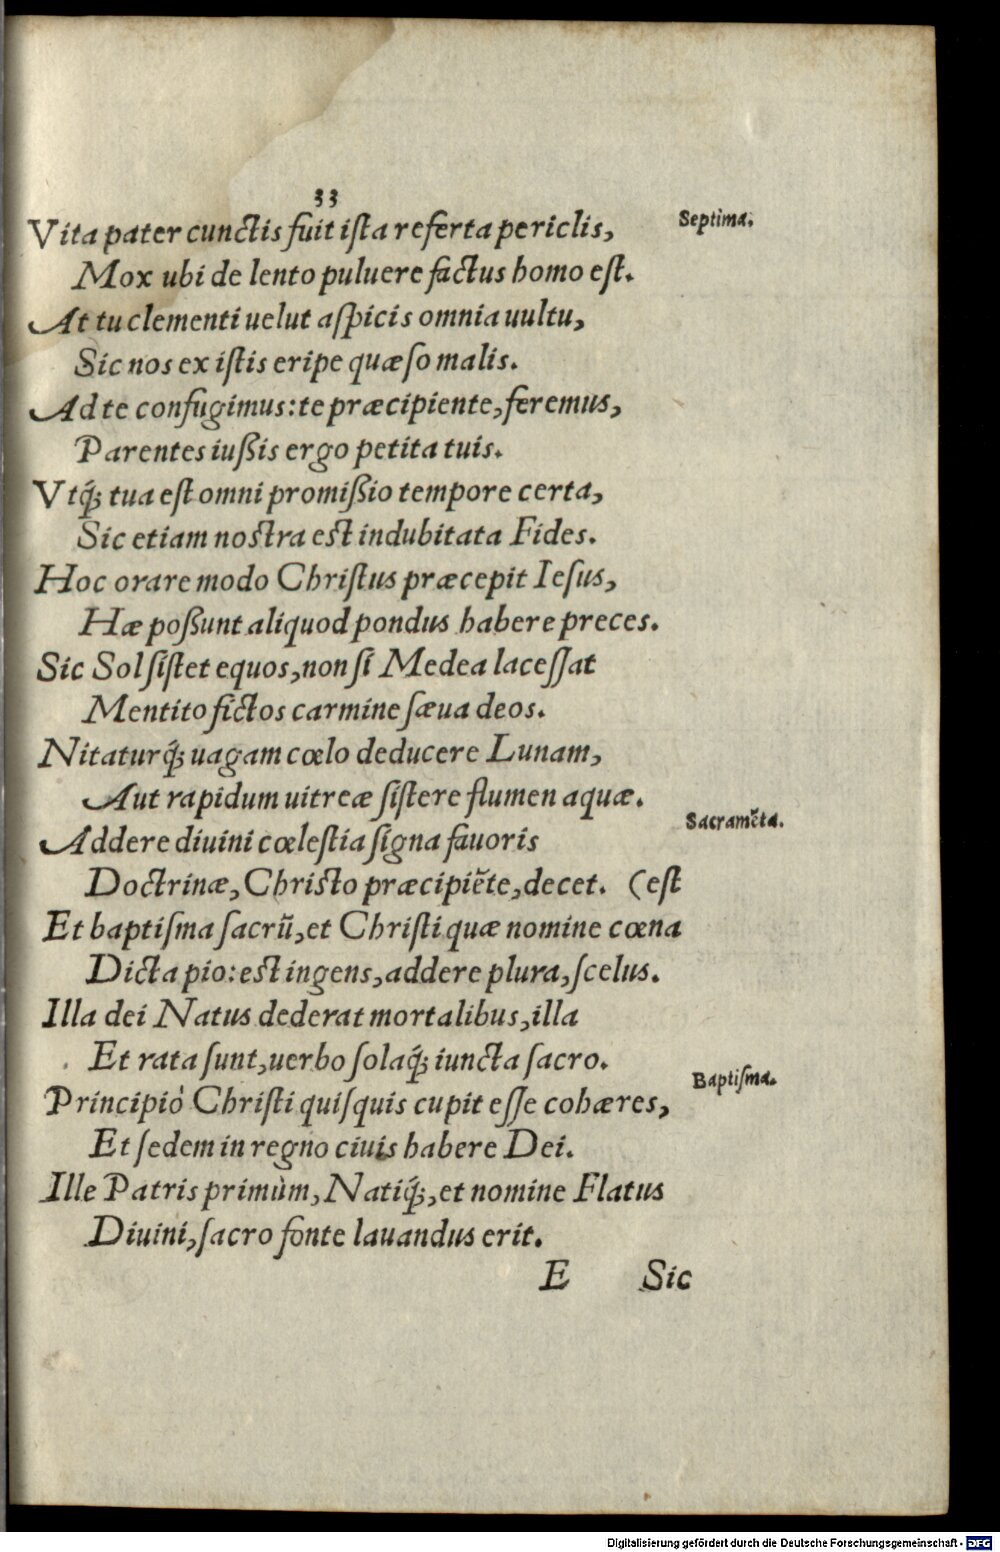 33
Vita pater cunctis fuit ista referta periclis, Septima.
Mox ubi de lento puluere factus homo est.
At tu clementi uelut aspicis omnia uultu,
Sic nos ex istis eripe quæso malis.
Ad te confugimus: te præcipiente, feremus,
Parentes iußis ergo petita tuis.
Vtq́; tua est omni promißio tempore certa,
Sic etiam nostra est indubitata Fides.
Hoc orare modo Christus præcepit Iesus,
Hæ poßunt aliquod pondus habere preces.
Sic Sol sistet equos, non si Medea lacessat
Mentito fictos carmine sæua deos.
Nitaturq́; uagam cœlo deducere Lunam,
Aut rapidum uitreæ sistere flumen aquæ.
Addere diuini cœlestia signa fauoris Sacramẽta.
Doctrinæ, Christo præcipiẽte, decet. (est
Et baptisma sacrũ, et Christi quæ nomine cœna
Dicta pio: est ingens, addere plura, scelus.
Illa dei Natus dederat mortalibus, illa
Et rata sunt, uerbo solaq́; iuncta sacro.
Principiò Christi quisquis cupit esse cohæres, Baptisma.
Et sedem in regno ciuis habere Dei.
Ille Patris primùm, Natiq́;, et nomine Flatus
Diuini, sacro fonte lauandus erit.
E Sic
Digitalisierung gefördert durch die Deutsche Forschungsgemeinschaft - DFG